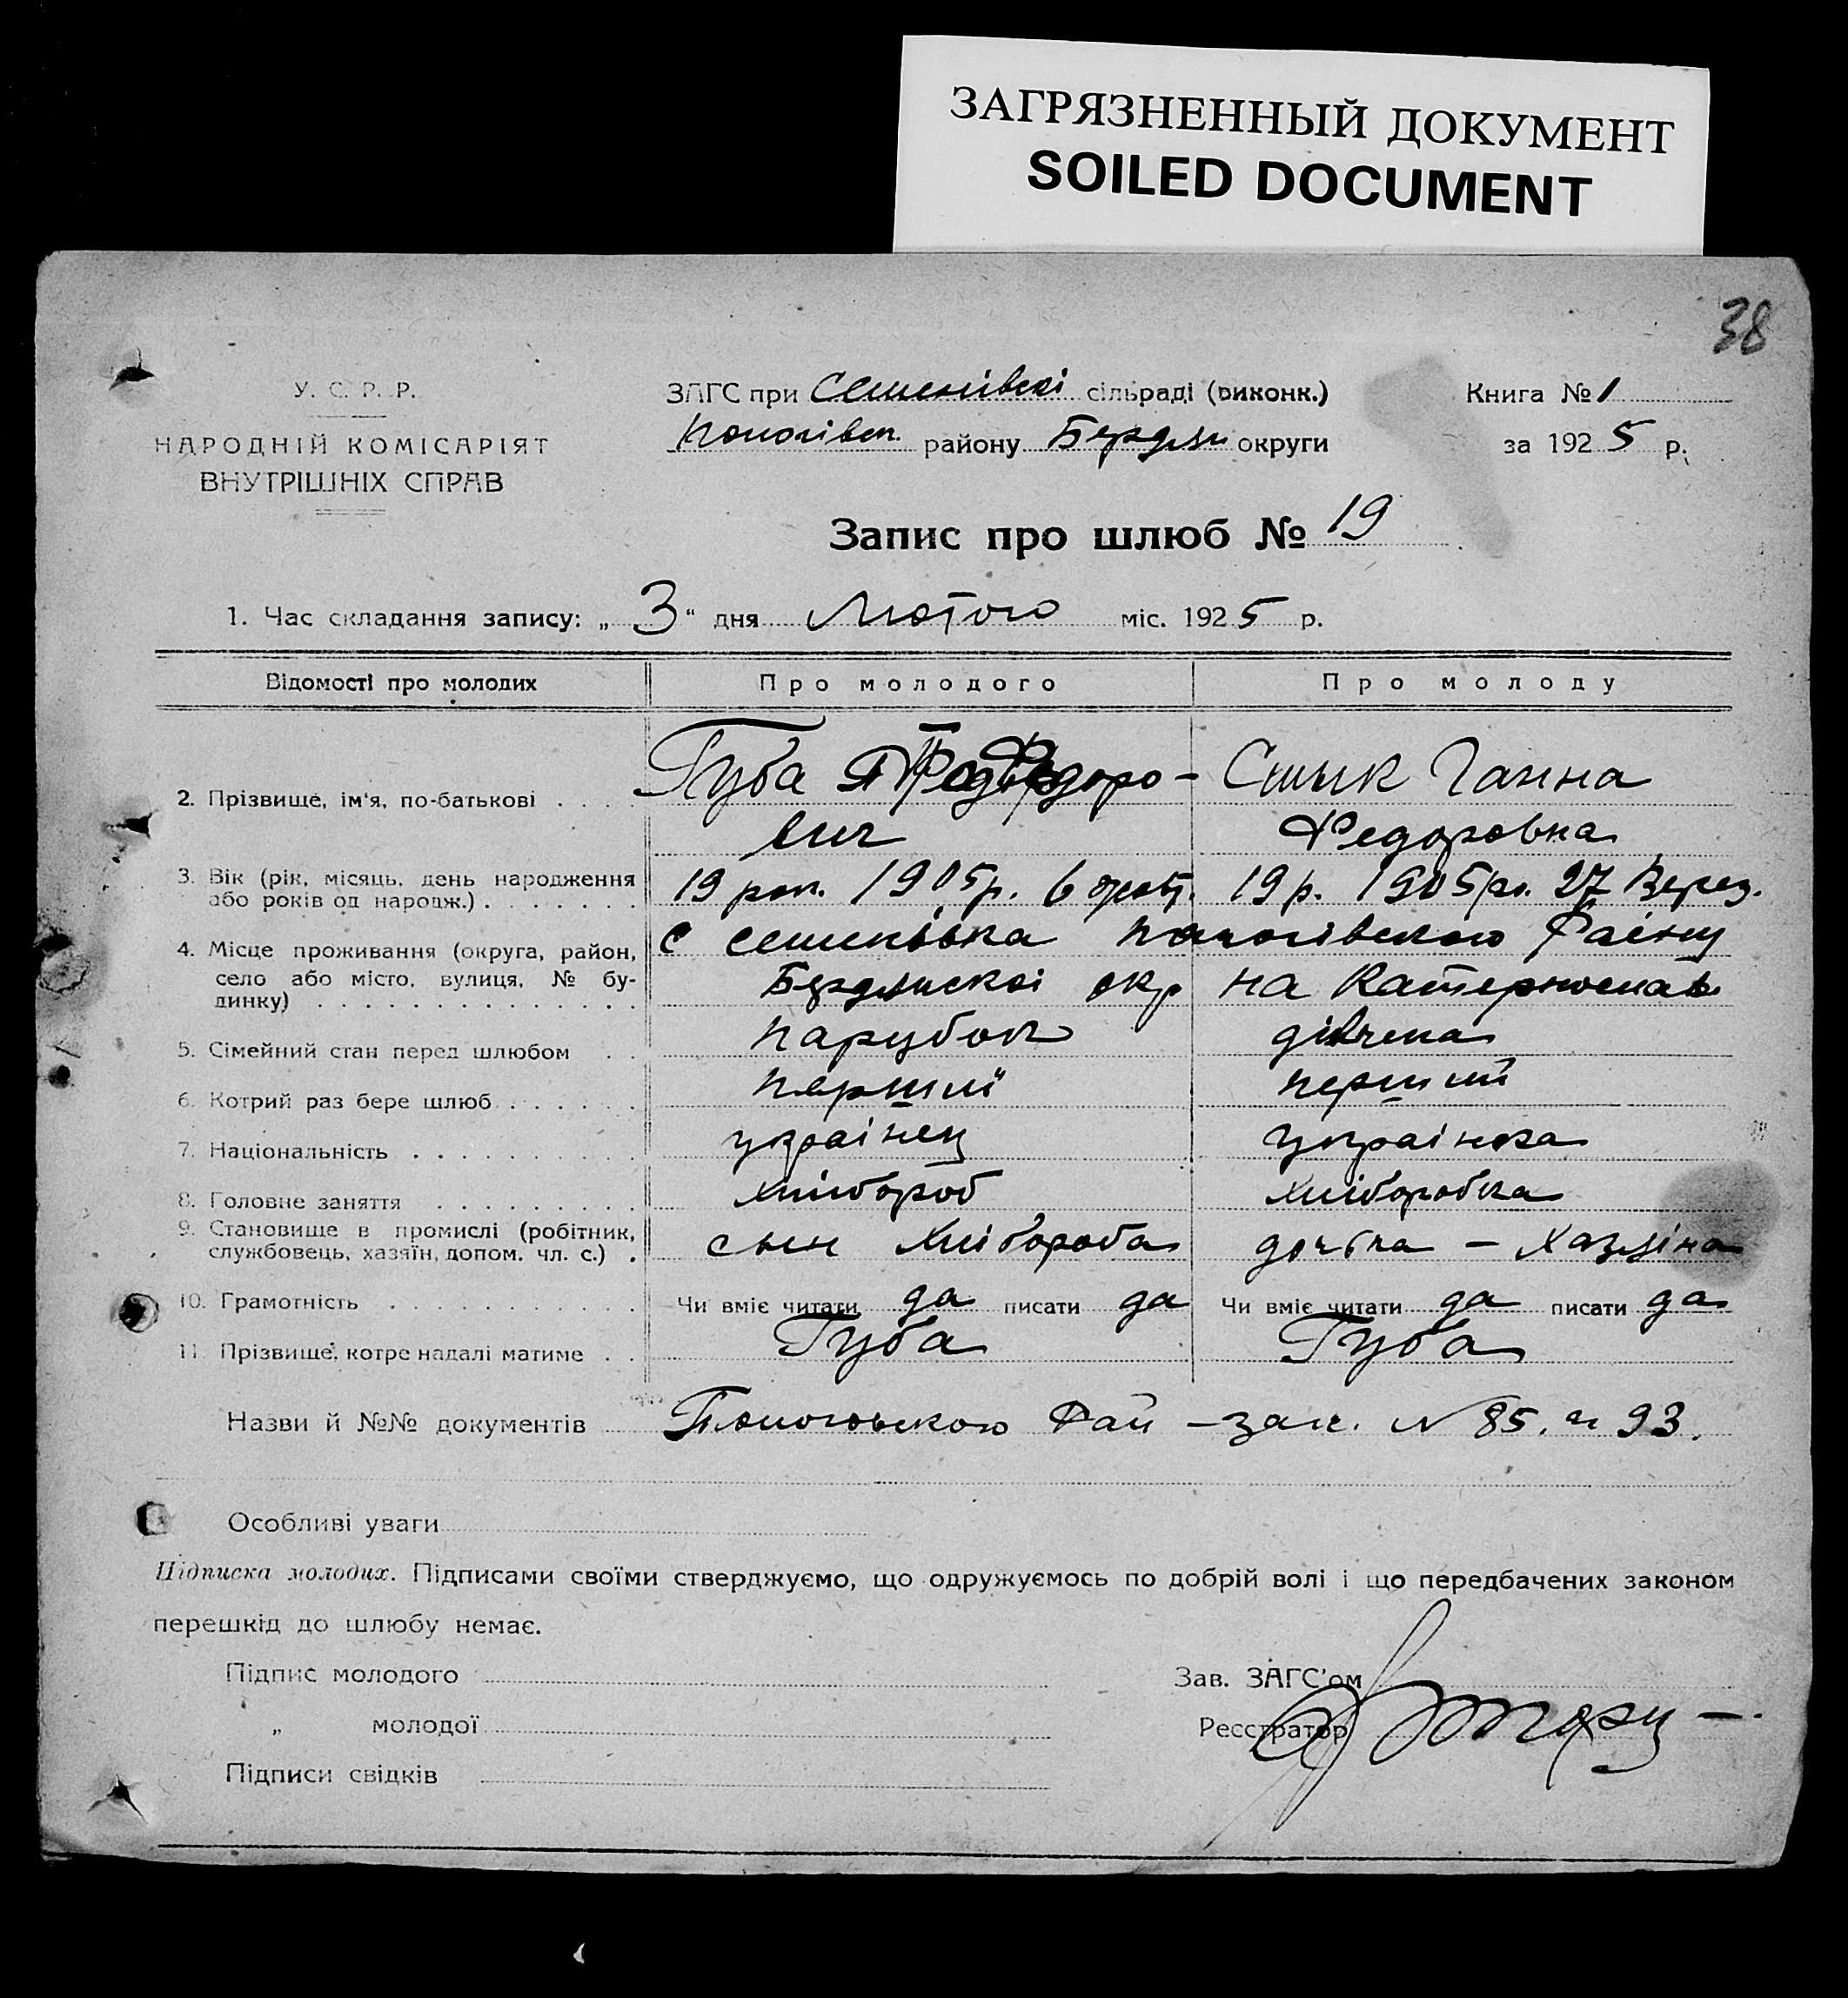 ЗАГРЯЗНЕННЫЙ ДОКУМЕНТ
SOILED DOCUMENT
38
У. С. Р. Р.
НАРОДНІЙ КОМІСАРІЯТ
ВНУТРІШНІХ СПРАВ
ЗАГС при Семенівскі сільраді (виконк.)
Пологівск. району Бердян округи
Книга № 1
за 1925 р.
Запис про шлюб № 19
1. Час складання запису: „3“ дня Лютого міс. 1925 р.
Відомості про молодих Про молодого Про молоду
2. Прізвище, ім'я, по-батькові . . . Губа Федоро- Смик Ганна
вич Федоровна
3. Вік (рік, місяць, день народження 19 рок. 1905 р. 6 19 р. 1905 р. 27 Верез.
або років од народж.) . . . . . . .
4. Місце проживання (округа, район, с Семенівка Пологівского Раёну
село або місто, вулиця, № бу- Бердянскоі окр на Катеринослав
динку) . . . . . . . . . . . . .
5. Сімейний стан перед шлюбом . . парубок дівчена
6. Котрий раз бере шлюб . . . . . . перший перший
7. Національність . . . . . . . . . . українец українка
8. Головне заняття . . . . . . . . . хлібороб хліборобка
9. Становище в промислі (робітник, сын хлібороба дочька - Хазяіна
службовець, хазяїн, допом. чл. с.) .
10. Грамотність . . . . . . . . . . . Чи вміє читати да писати да Чи вміє читати да писати да
11. Прізвище, котре надалі матиме . . Губа Губа
Назви й №№ документів Пологовського Рай - заг. N 85. и 93.
Особливі уваги
Підписка молодих. Підписами своїми стверджуємо, що одружуємось по добрій волі і що передбачених законом
перешкід до шлюбу немає.
Підпис молодого
Зав. ЗАГС'ом
„ молодої
Реєстратор
Підписи свідків